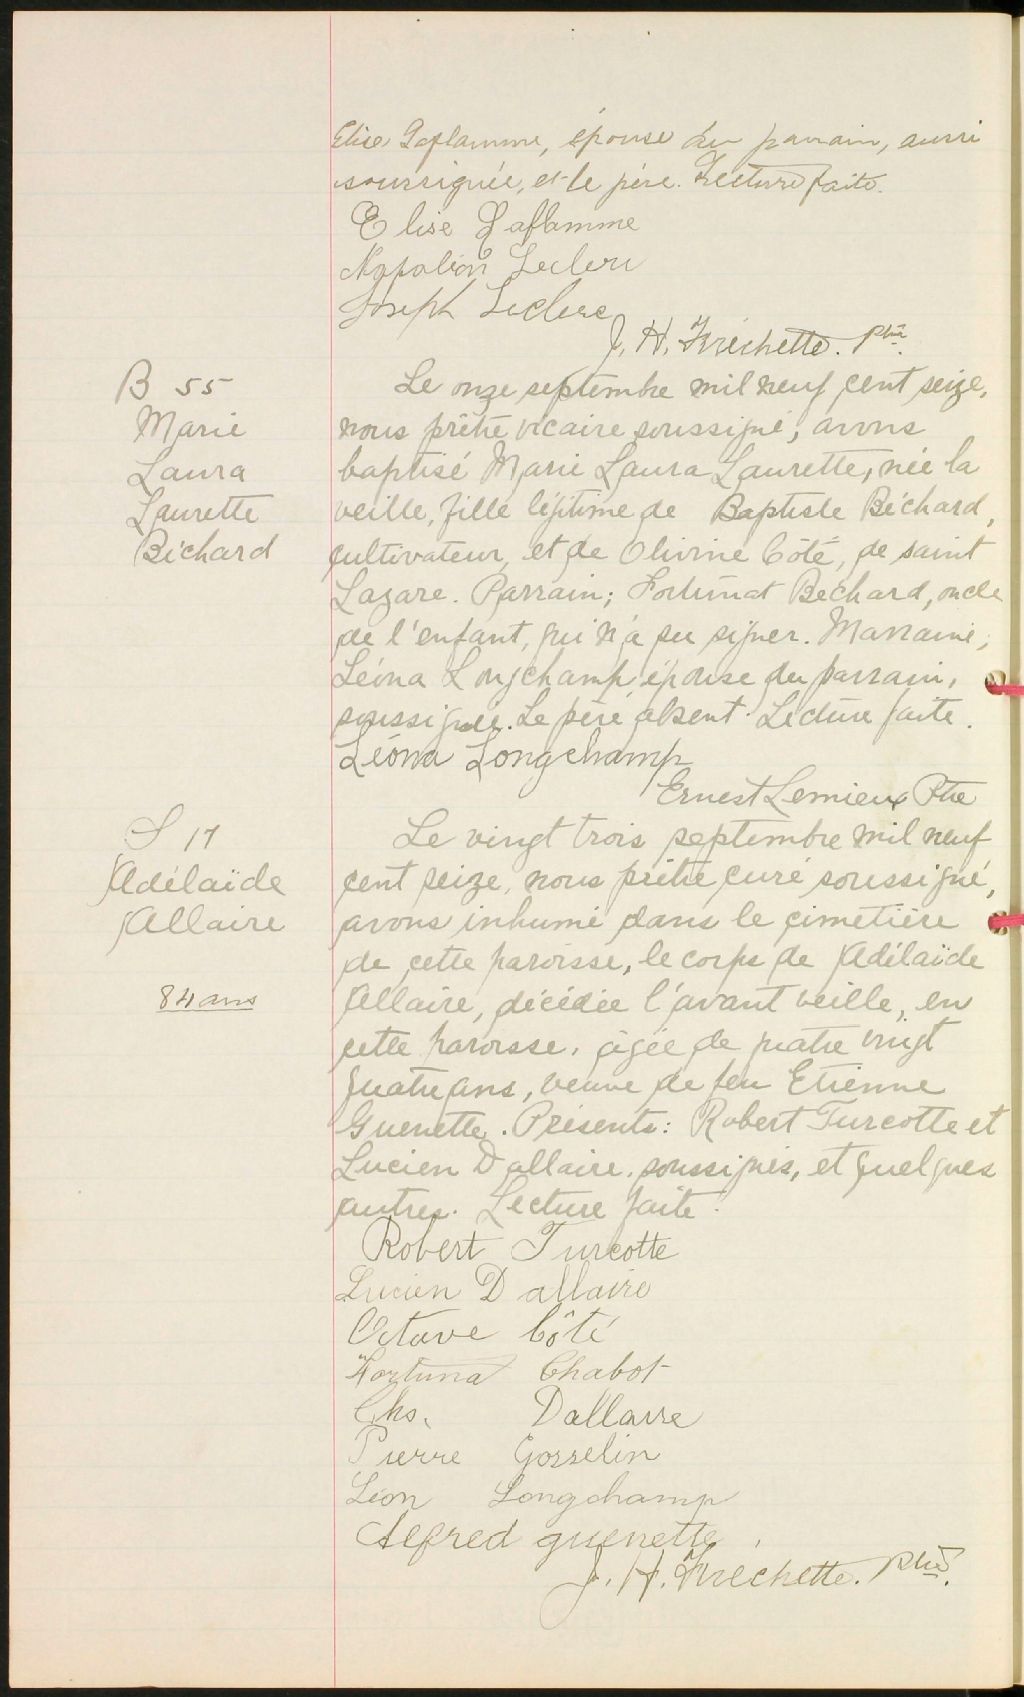 Elise Laflamme, épouse du parrain, aussi
soussignée, et le père. Lecture faite.
Elise Laflamme
Napoléon Leclerc
Joseph Leclerc
J. H. Fréchette. Ptre.
B 55
Marie
Laura
Laurette
Béchard
Le onze septembre mil neuf cent seize,
nous prêtre vicaire soussigné, avons
baptisé Marie Laura Laurette, née la
veille, fille légitime de Baptiste Béchard,
cultivateur, et de Olivine Côté, de saint
Lazare. Parrain; Fortunat Bechard, oncle
de l'enfant, qui n'a su signer. Marraine;
Léona Longchamp, épouse du parrain,
soussignée. Le père absent. Lecture faite.
Léona Longchamp
Ernest Lemieux Ptre
S 17
Adélaïde
Allaire
84 ans
Le vingt trois septembre mil neuf
cent seize, nous prêtre curé soussigné,
avons inhumé dans le cimetière
de cette paroisse, le corps de Adélaïde
Allaire, décédée l'avant veille, en
cette paroisse, âgée de quatre vingt
quatre ans, veuve de feu Etienne
Guenette. Présents: Robert Turcotte et
Lucien Dallaire, soussignés, et quelques
autres. Lecture faite.
Robert Turcotte
Lucien Dallaire
Octave Côté
Fortunat Chabot
Chs. Dallaire
Pierre Gosselin
Léon Longchamp
Alfred guenette
J. H. Fréchette. Ptre.